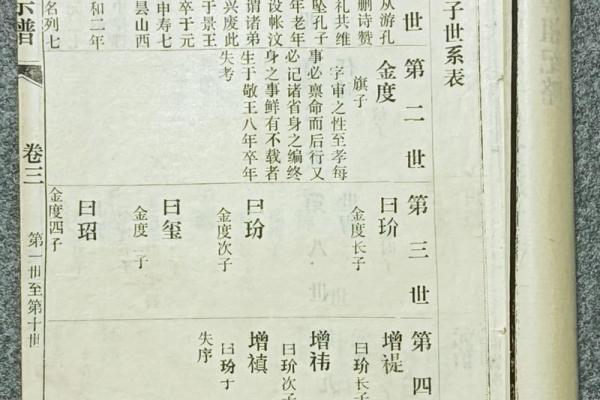 子世系表
世
从游孔
删诗赞
礼共维
坠孔子
年老年
设帐汶
谓诸弟
兴废此
于景王
卒于元
申寿七
山西
和二年
名列七
第二世
金度
旗子
字审之性至孝每
事必禀命而后行又
必记诸省身之编终
身之事鲜有不载者
生于敬王八年卒年
失考
第三世
曰玠
金度长子
曰玢
金度次子
曰玺
金度子
曰玿
金度四子
第四
增禔
曰玠长子
增祎
曰玠次子
增禛
曰玢子
失序
宗谱
卷三
第一世至第十世